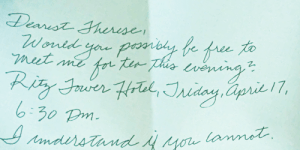 Dearest Therese,
Would you possibly be free to
meet me for tea this evening?
Ritz Tower Hotel, Friday, April 17,
6:30 Pm.
I understand if you cannot.